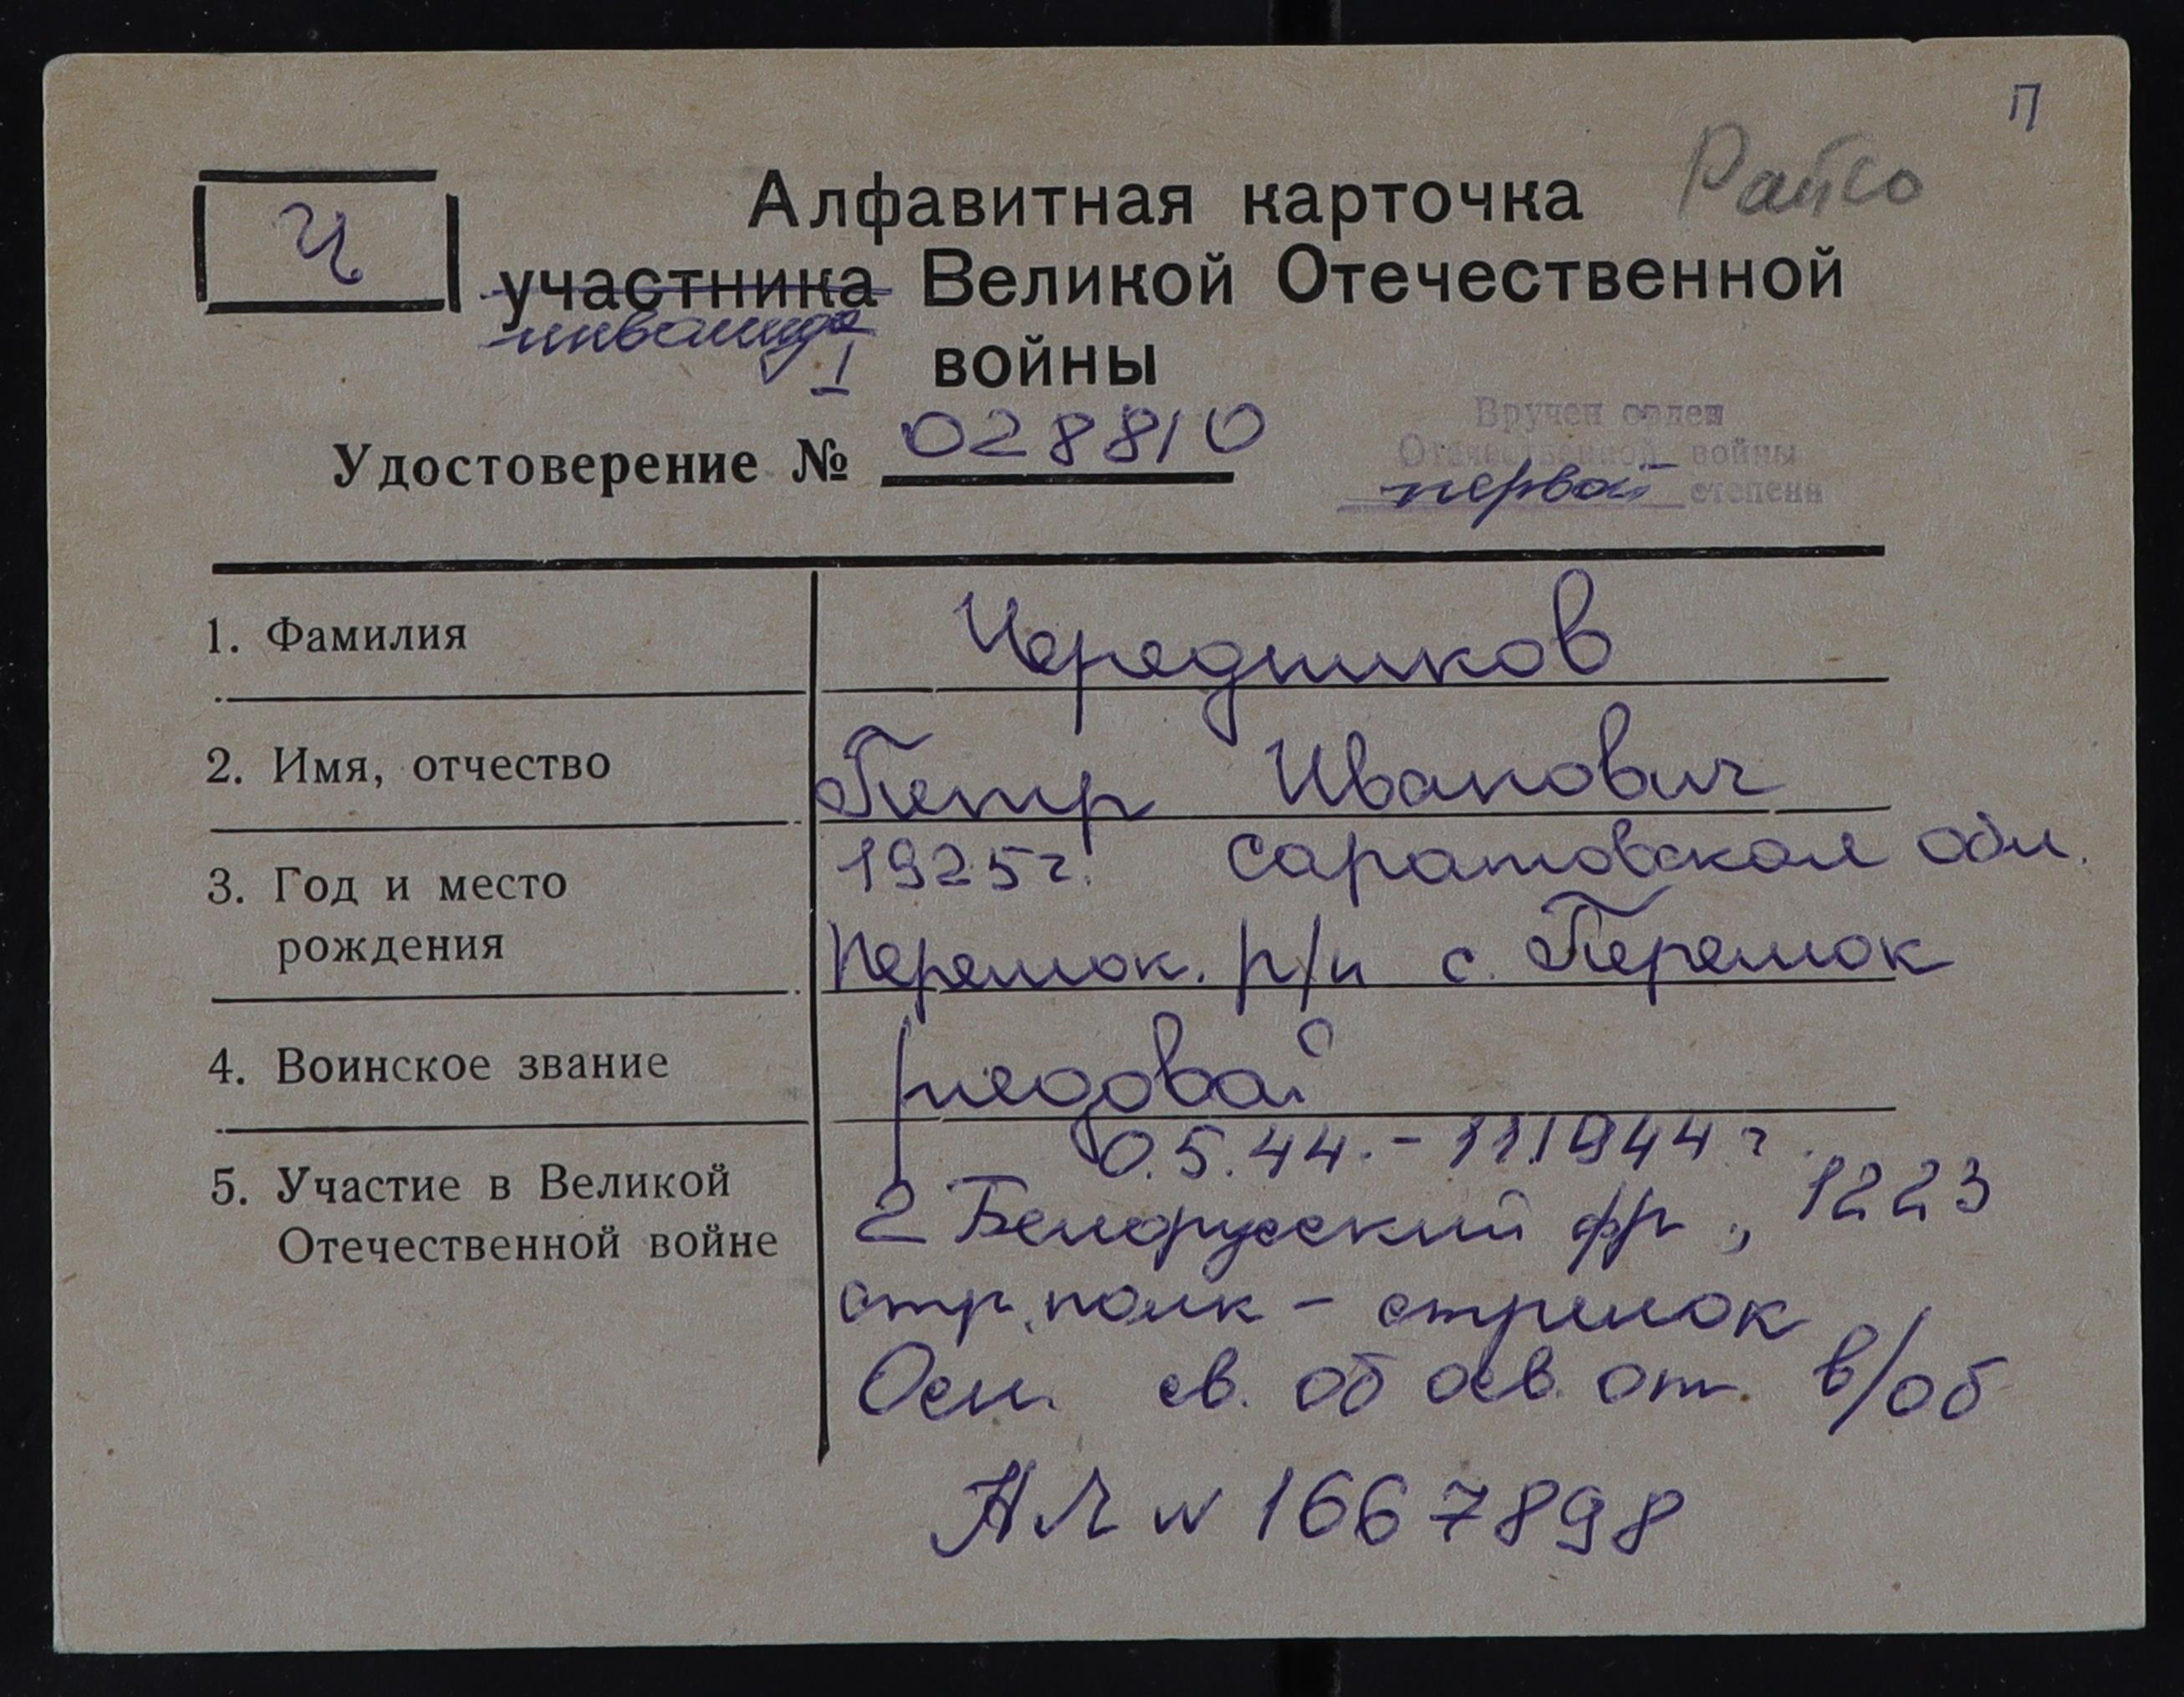 П
Райсо
Ч
Алфавитная карточка
участника Великой Отечественной
инвалида I войны
Удостоверение № 028810
Вручен орден
Отечественной войны
первой степени
1. Фамилия Чередников
2. Имя, отчество Петр Иванович
3. Год и место 1925г. Саратовская обл.
рождения Перелюк. р/н с. Перелюк
4. Воинское звание рядовой
0.5.44. - 11.1944 г.
5. Участие в Великой 2 Белорусский фр., 1223
Отечественной войне стр. полк - стрелок
Осн. св. об осв. от в/об
АЛ № 1667898